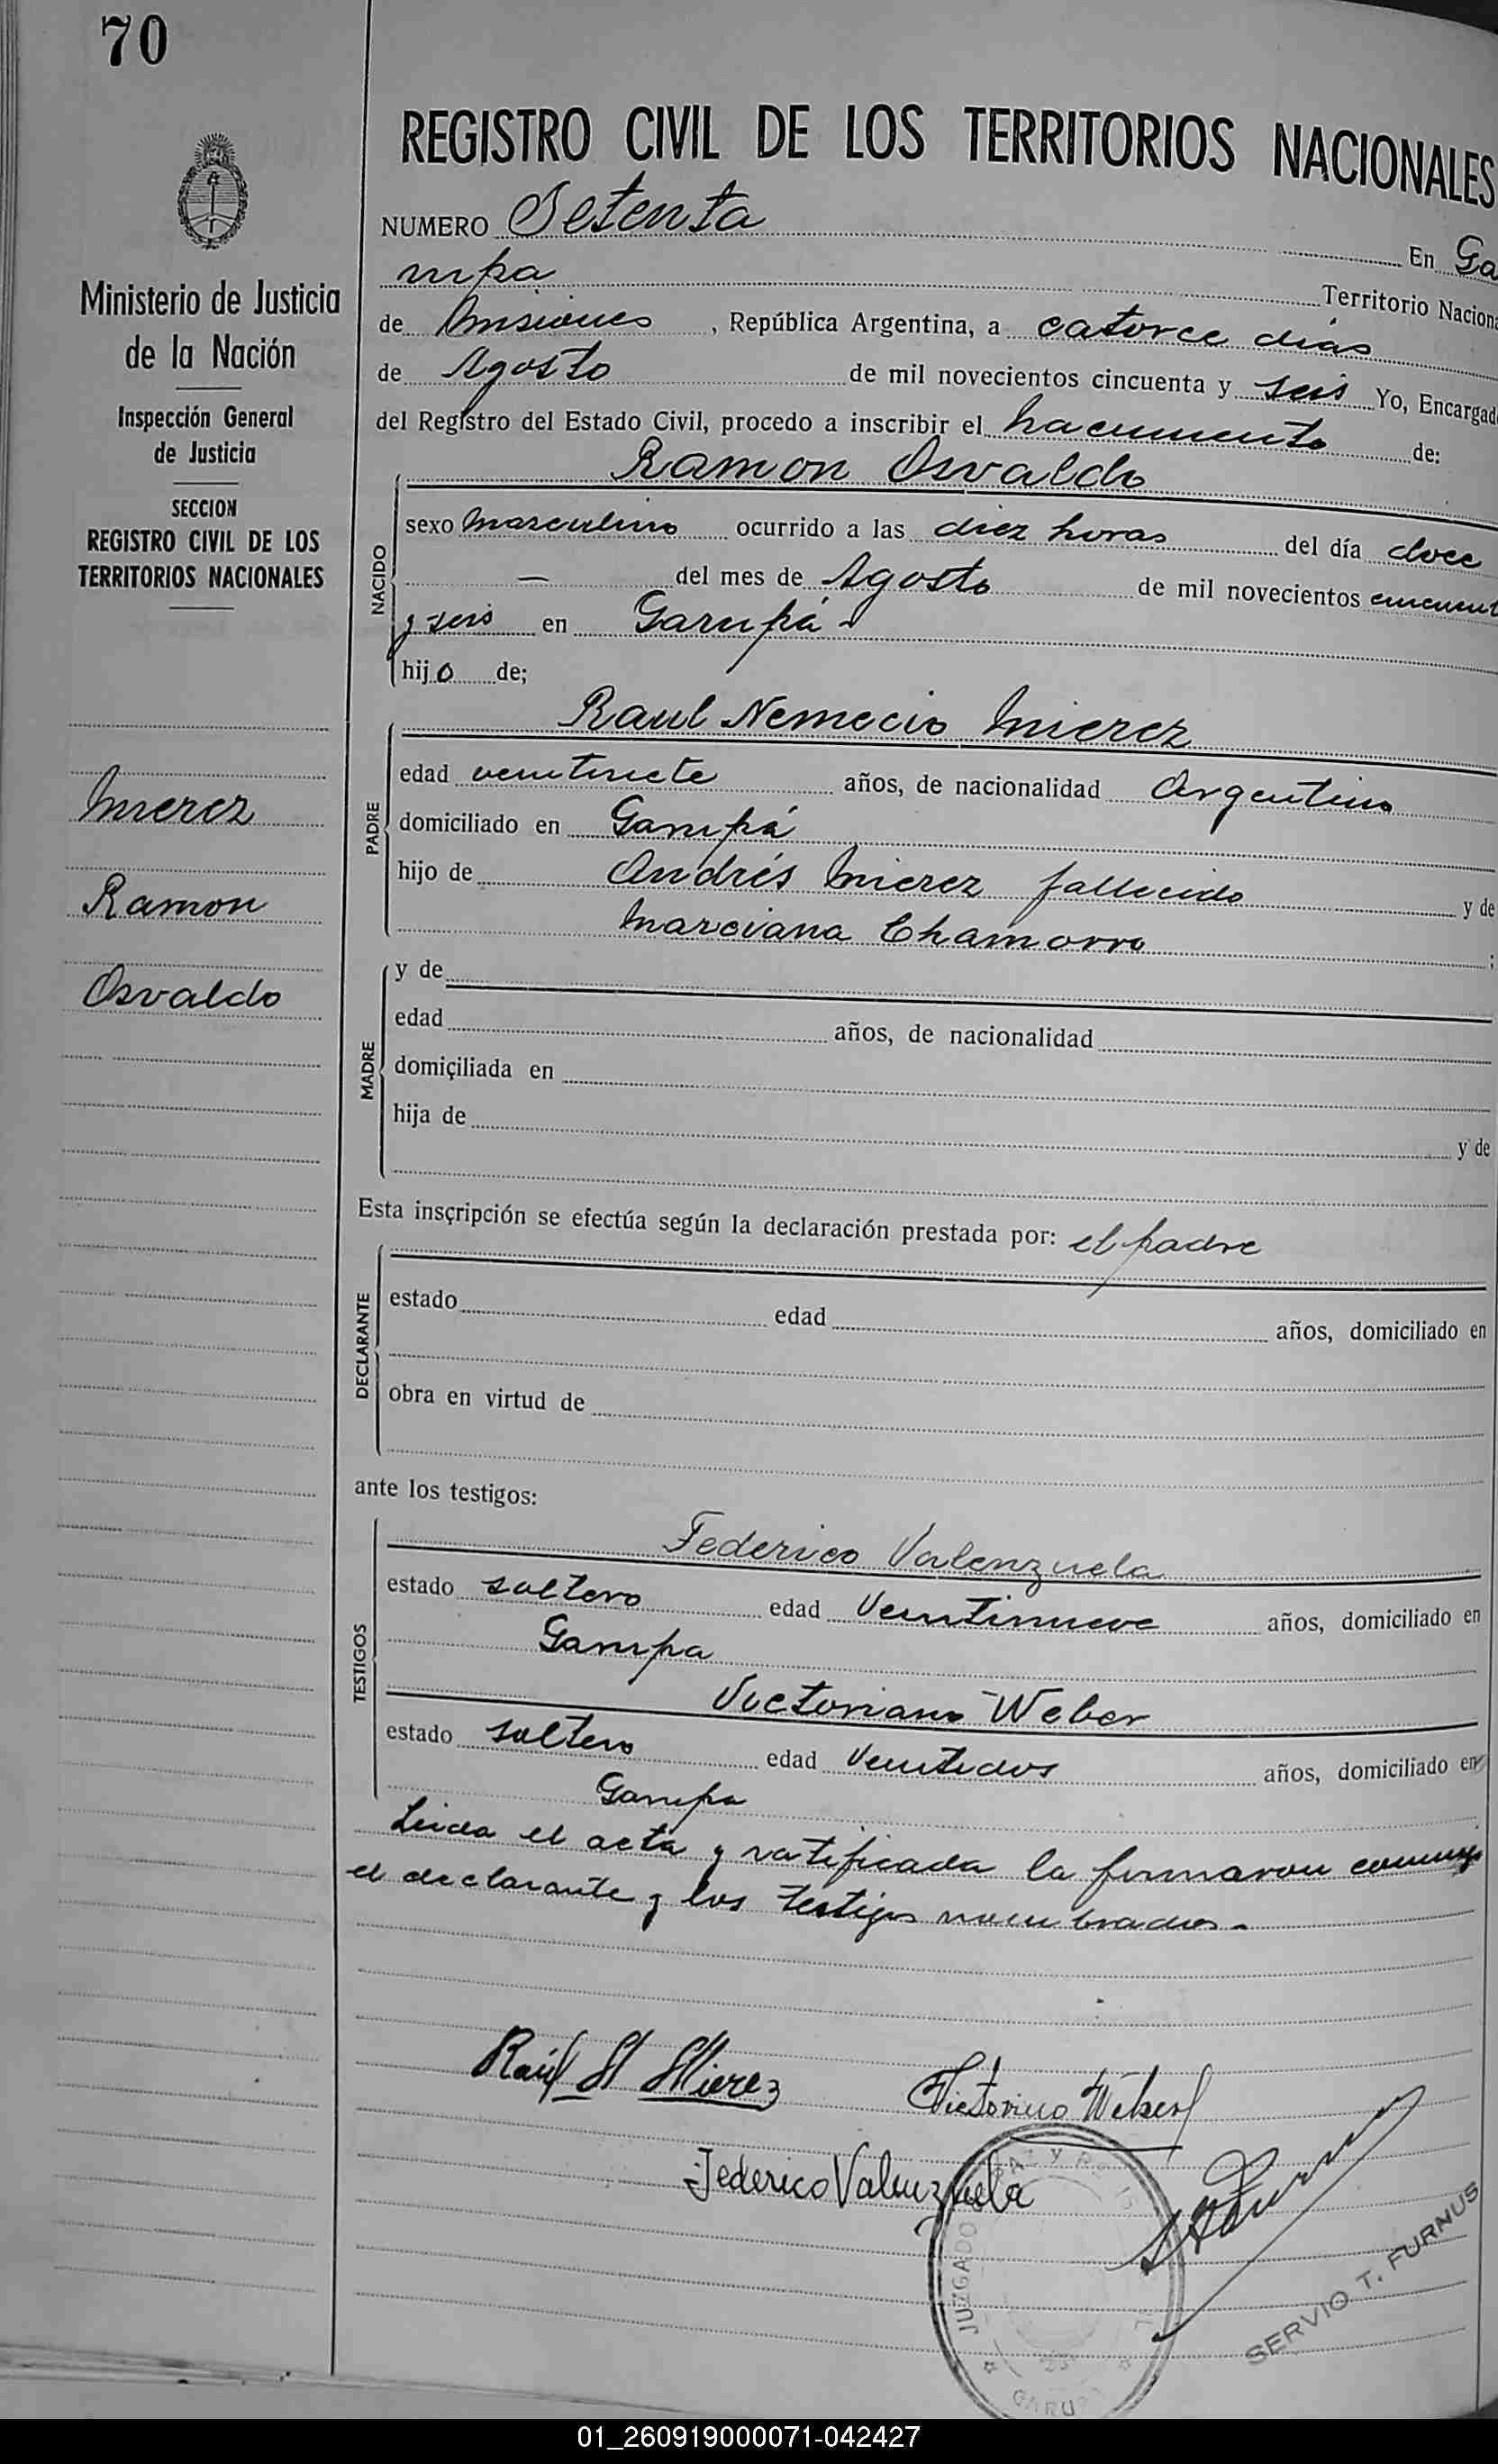 70
REGISTRO CIVIL DE LOS TERRITORIOS NACIONALES
NUMERO Setenta En Ga
rupa Territorio Naciona
de Misiones, República Argentina, a catorce dias
de Agosto de mil novecientos cincuenta y seis Yo, Encargado
del Registro del Estado Civil, procedo a inscribir el nacimiento de:
Ramon Osvaldo
sexo masculino ocurrido a las diez horas del día doce
— del mes de Agosto de mil novecientos cincuent
y seis en Garupá -
hijo de;
NACIDO
Raul Nemecio Mierez
edad veintisiete años, de nacionalidad Argentino
domiciliado en Garupá
hijo de Andrés Mierez fallecido y de
Marciana Chamorro ;
PADRE
y de
edad años, de nacionalidad
domiciliada en
hija de y de
MADRE
Esta inscripción se efectúa según la declaración prestada por: el padre
estado edad años, domiciliado en
obra en virtud de
DECLARANTE
ante los testigos:
Federico Valenzuela
estado soltero edad Veintinueve años, domiciliado en
Garupa
Victoriano Weber
estado soltero edad Veintidos años, domiciliado en
Garupa
TESTIGOS
Leida el acta y ratificada la firmaron conmigo
el declarante y los testigos nombrados -
Raúl N Mierez
Victorino Weber
Federico Valenzuela
JUZGADO
GARU
SERVIO T. FURNUS
Ministerio de Justicia
de la Nación
Inspección General
de Justicia
SECCION
REGISTRO CIVIL DE LOS
TERRITORIOS NACIONALES
Mierez
Ramon
Osvaldo
01_260919000071-042427